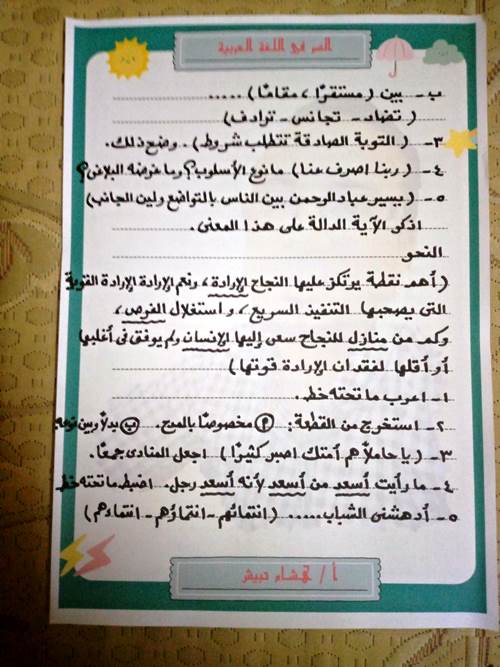 السر في اللغة العربية
ب- بين (مستقرًا ، مقامًا) .....
(تضاد - تجانس - ترادف)
٣- (التوبة الصادقة تتطلب شروط) . وضح ذلك.
٤- (ربنا اصرف عنا) ما نوع الأسلوب؟ وما غرضه البلاغي؟
٥- (يسير عباد الرحمن بين الناس بالتواضع ولين الجانب)
اذكر الآية الدالة على هذا المعنى.
النحو
(أهم نقطة يرتكز عليها النجاح الإرادة ، ونعم الإرادة الإرادة القوية
التى يصحبها التنفيذ السريع ، واستغلال الفرص ،
وكم من منازل للنجاح سعى إليها الإنسان ولم يوفق فى أغلبها
أو أقلها لفقدان الإرادة قوتها)
١- اعرب ما تحته خط.
٢- استخرج من القطعة: (أ) مخصوصًا بالمدح. (ب) بدلاً وبين نوعه
٣- (يا حاملاً هم أمتك اصبر كثيرًا) اجعل المنادى جمعًا.
٤- ما رأيت أسعد من أسعد لأنه أسعد رجل. اضبط ما تحته خط
٥- أدهشنى الشباب ...... (انتمائهم - انتماؤهم - انتماءهم)
أ / هشام حبيش